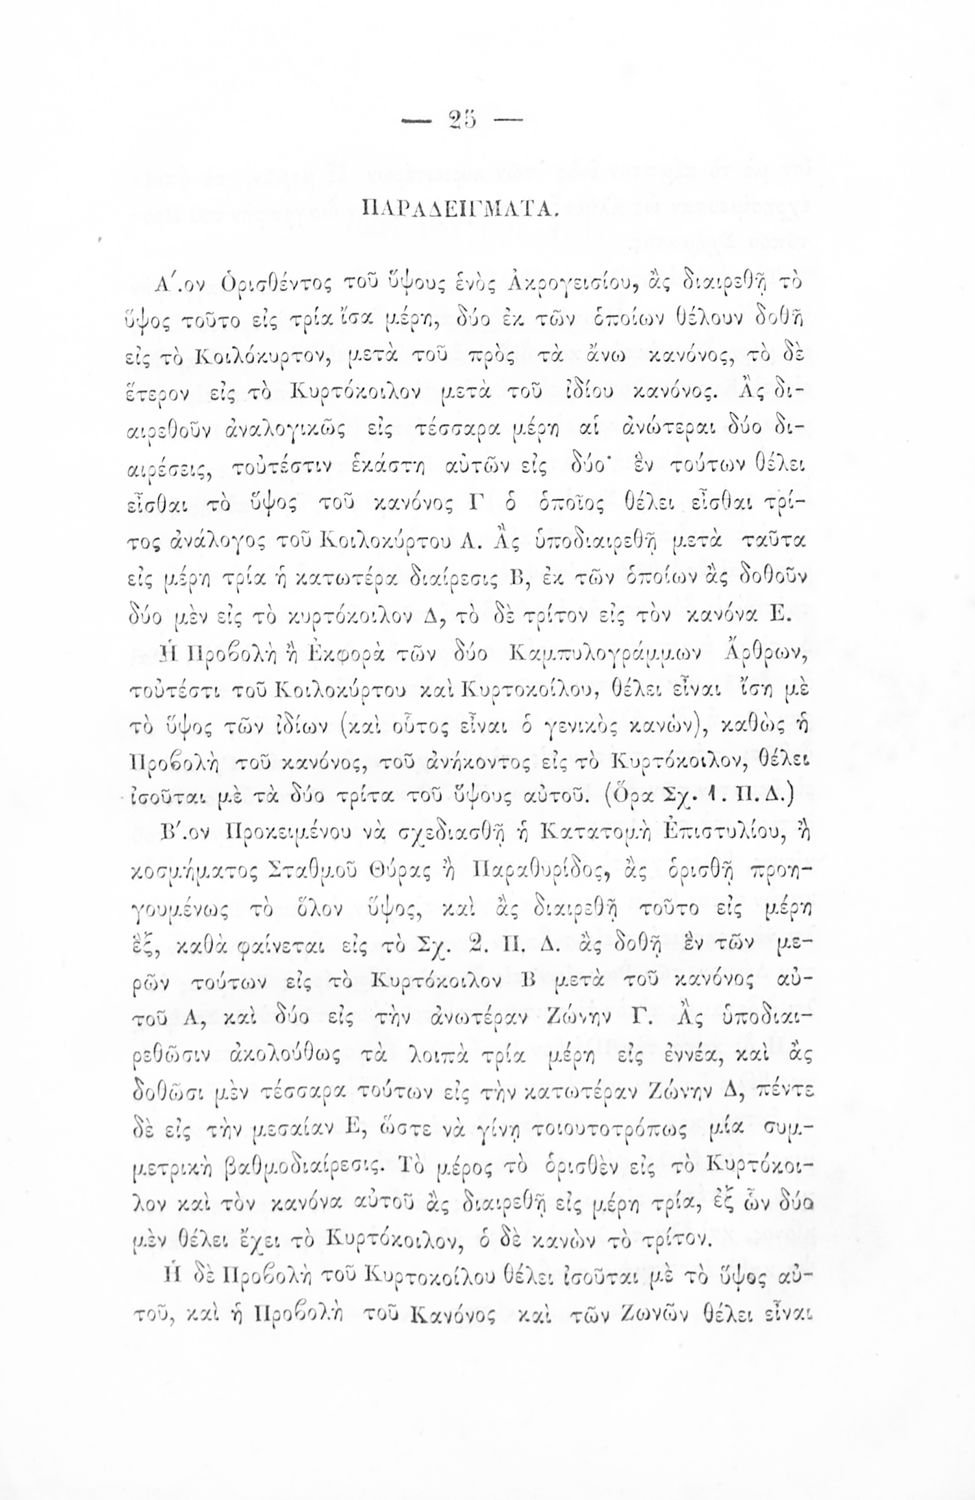 — 25 —
ΠΑΡΑΔΕΙΓΜΑΤΑ.
Α΄.ον Ὁρισθέντος τοῦ ὕψους ἑνὸς Ἀκρογεισίου, ἂς διαιρεθῇ τὸ
ὕψος τοῦτο εἰς τρία ἴσα μέρη, δύο ἐκ τῶν ὁποίων θέλουν δοθῆ
εἰς τὸ Κοιλόκυρτον, μετὰ τοῦ πρὸς τὰ ἄνω κανόνος, τὸ δὲ
ἕτερον εἰς τὸ Κυρτόκοιλον μετὰ τοῦ ἰδίου κανόνος. Ἂς δι-
αιρεθοῦν ἀναλογικῶς εἰς τέσσαρα μέρη αἱ ἀνώτεραι δύο δι-
αιρέσεις, τοὐτέστιν ἑκάστη αὐτῶν εἰς δύο· ἓν τούτων θέλει
εἶσθαι τὸ ὕψος τοῦ κανόνος Γ ὁ ὁποῖος θέλει εἶσθαι τρί-
τος ἀνάλογος τοῦ Κοιλοκύρτου Α. Ἂς ὑποδιαιρεθῇ μετὰ ταῦτα
εἰς μέρη τρία ἡ κατωτέρα διαίρεσις Β, ἐκ τῶν ὁποίων ἂς δοθοῦν
δύο μὲν εἰς τὸ κυρτόκοιλον Δ, τὸ δὲ τρίτον εἰς τὸν κανόνα Ε.
Ἡ Προβολὴ ἢ Ἐκφορὰ τῶν δύο Καμπυλογράμμων Ἄρθρων,
τοὐτέστι τοῦ Κοιλοκύρτου καὶ Κυρτοκοίλου, θέλει εἶναι ἴση μὲ
τὸ ὕψος τῶν ἰδίων (καὶ οὗτος εἶναι ὁ γενικὸς κανὼν), καθὼς ἡ
Προβολὴ τοῦ κανόνος, τοῦ ἀνήκοντος εἰς τὸ Κυρτόκοιλον, θέλει
ἰσοῦται μὲ τὰ δύο τρίτα τοῦ ὕψους αὑτοῦ. (Ὅρα Σχ. 1. Π.Δ.)
Β΄.ον Προκειμένου νὰ σχεδιασθῇ ἡ Κατατομὴ Ἐπιστυλίου, ἢ
κοσμήματος Σταθμοῦ Θύρας ἢ Παραθυρίδος, ἂς ὁρισθῇ προη-
γουμένως τὸ ὅλον ὕψος, καὶ ἂς διαιρεθῇ τοῦτο εἰς μέρη
ἓξ, καθὰ φαίνεται εἰς τὸ Σχ. 2. Π. Δ. ἂς δοθῇ ἓν τῶν με-
ρῶν τούτων εἰς τὸ Κυρτόκοιλον Β μετὰ τοῦ κανόνος αὑ-
τοῦ Α, καὶ δύο εἰς τὴν ἀνωτέραν Ζώνην Γ. Ἂς ὑποδιαι-
ρεθῶσιν ἀκολούθως τὰ λοιπὰ τρία μέρη εἰς ἐννέα, καὶ ἂς
δοθῶσι μὲν τέσσαρα τούτων εἰς τὴν κατωτέραν Ζώνην Δ, πέντε
δὲ εἰς τὴν μεσαίαν Ε, ὥστε νὰ γίνῃ τοιουτοτρόπως μία συμ-
μετρικὴ βαθμοδιαίρεσις. Τὸ μέρος τὸ ὁρισθὲν εἰς τὸ Κυρτόκοι-
λον καὶ τὸν κανόνα αὑτοῦ ἂς διαιρεθῇ εἰς μέρη τρία, ἐξ ὧν δύο
μὲν θέλει ἔχει τὸ Κυρτόκοιλον, ὁ δὲ κανὼν τὸ τρίτον.
Ἡ δὲ Προβολὴ τοῦ Κυρτοκοίλου θέλει ἰσοῦται μὲ τὸ ὕψος αὑ-
τοῦ, καὶ ἡ Προβολὴ τοῦ Κανόνος καὶ τῶν Ζωνῶν θέλει εἶναι